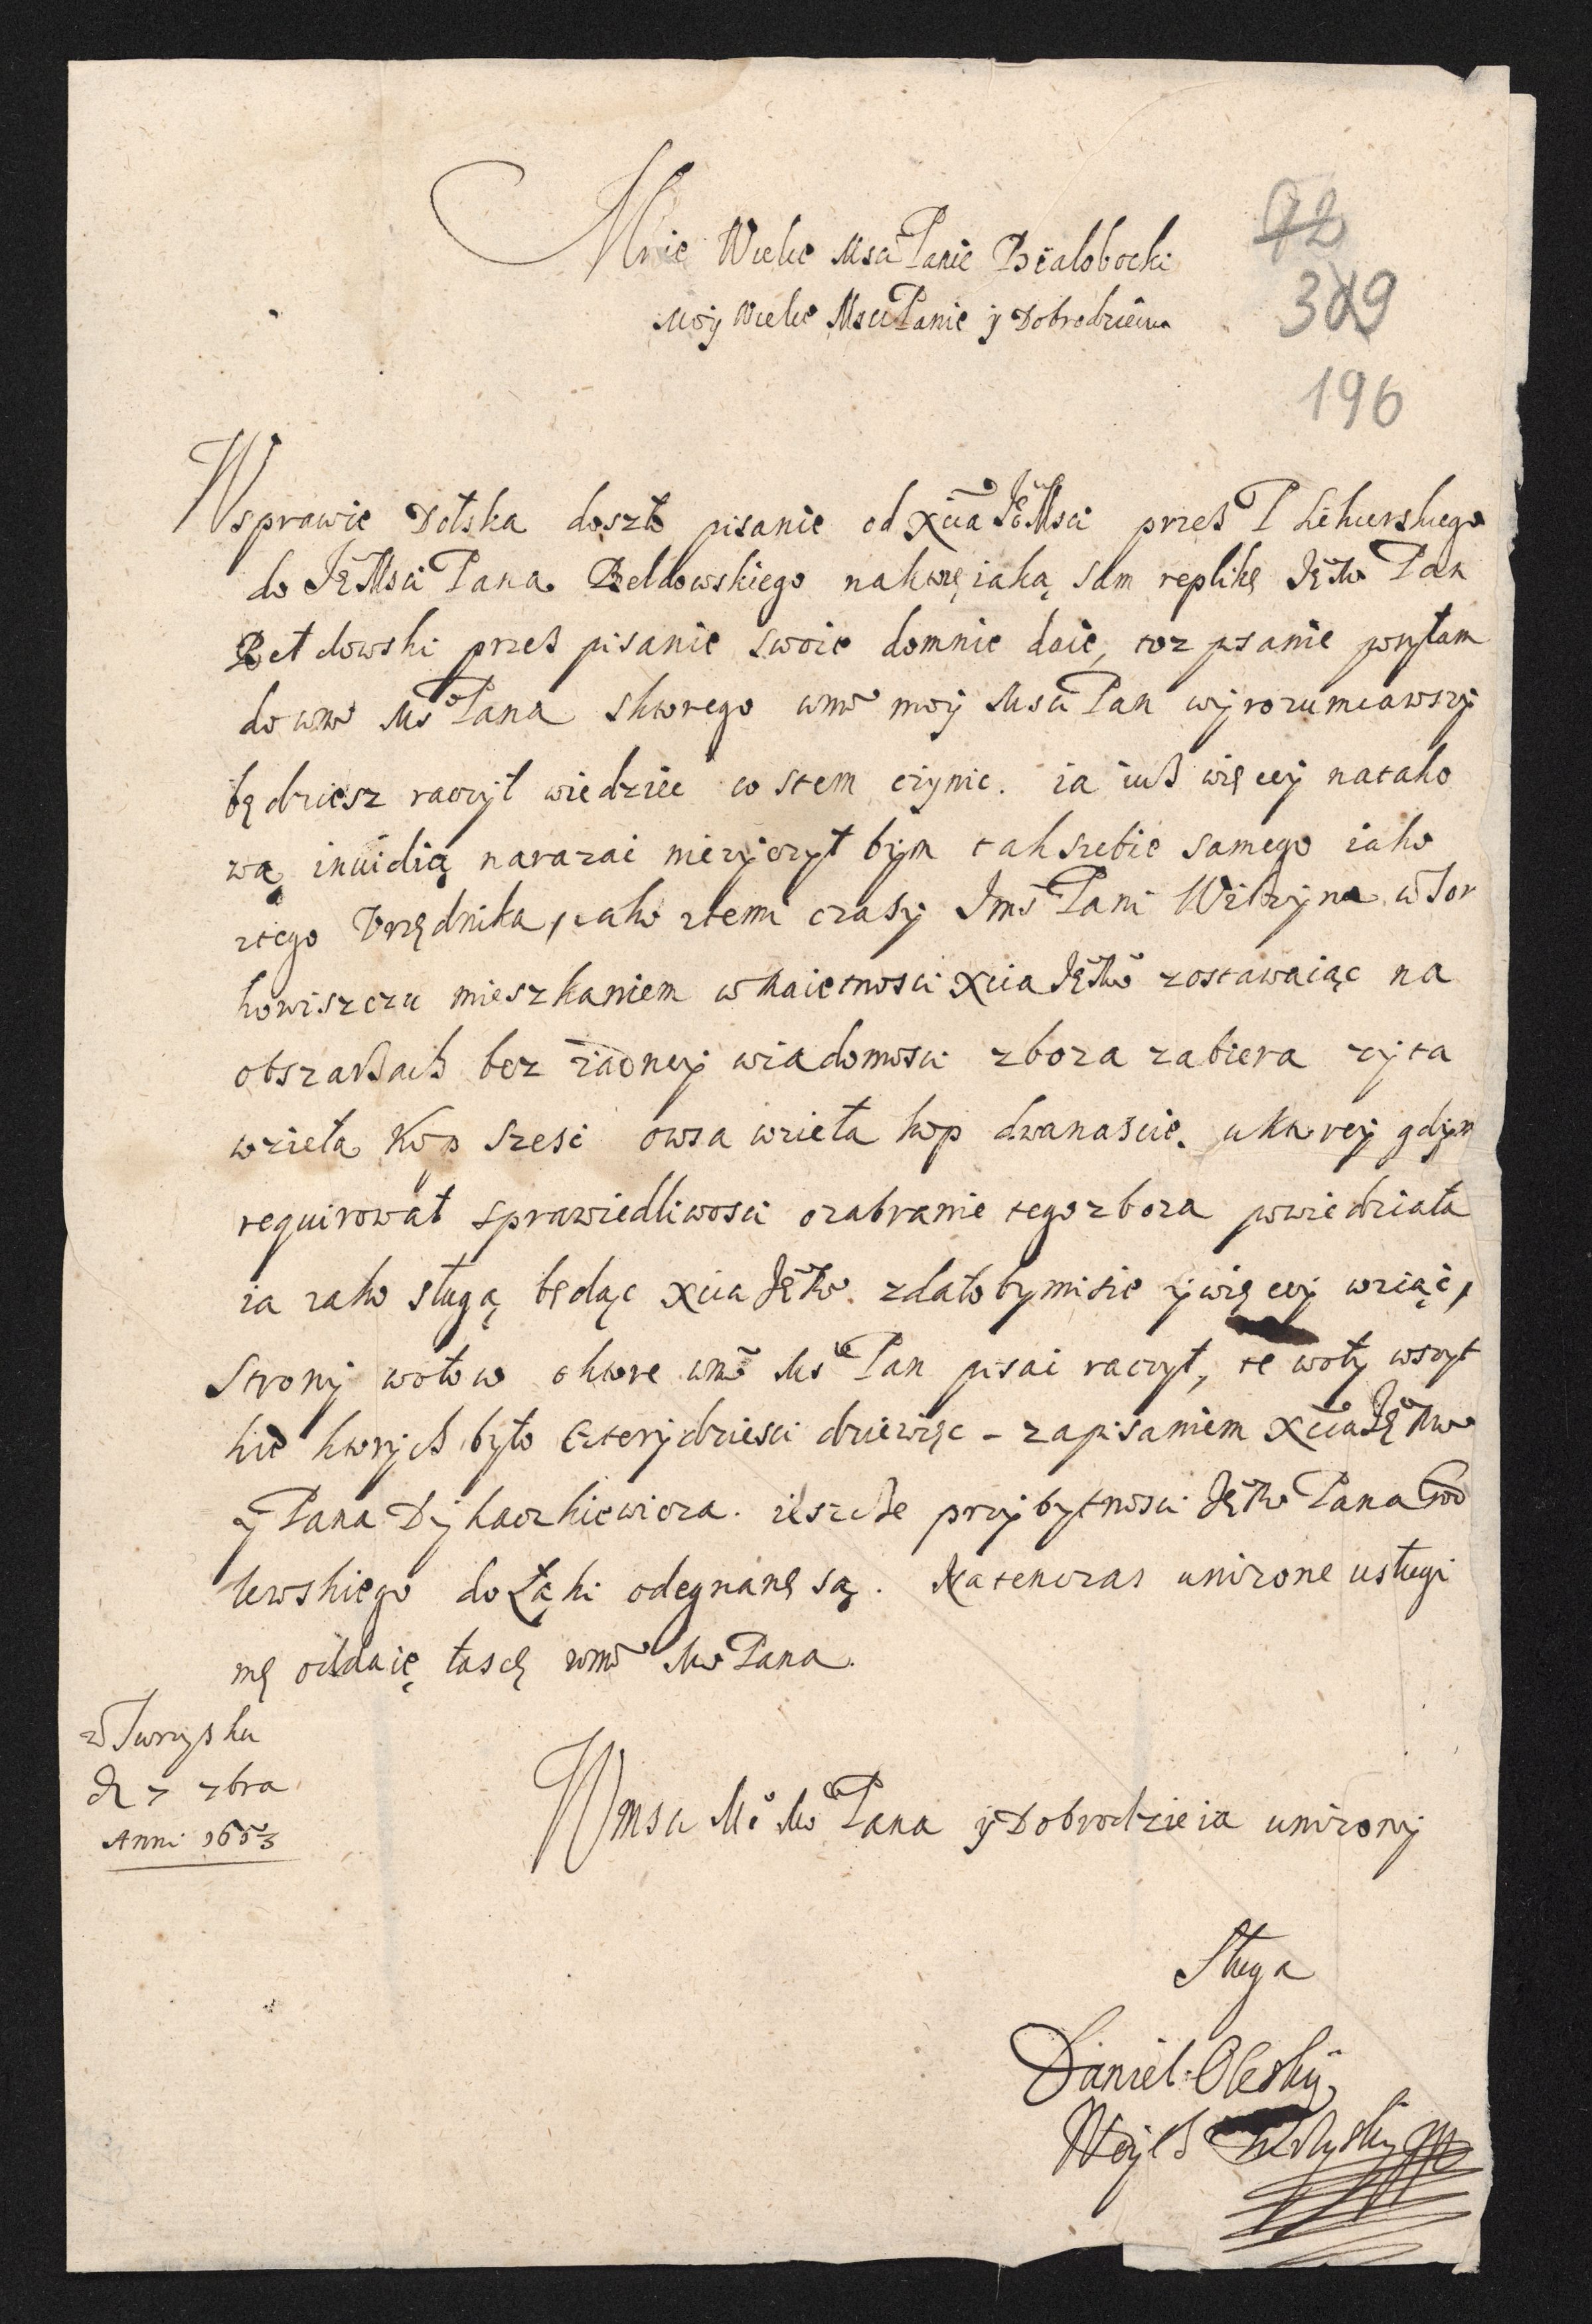 Mnie Wielce Msci Panie Białobocki
Moy Wielce Msci Panie y Dobrodzieiu
72
309
196
W sprawie Dolska doszło pisanie od Xcia JeoMsci przes P
do JęMsci Pana Bełdowskiego naktorę iaką sam replikę JęMo Pan
Bełdowski przes pisanie swoie domnie daie, toz pisanie posyłam
do wmo Ms Pana sktorego wmo moy Msci Pan wyrozumiawszy
będziesz raczył wiedziec co stem czynic. ia iuß więcey natako
wą inuidią narazac nieżyczył bym tak siebie samego iako
ztego Vrzędnika, iako ztemi czasy Jms Pani Wilżyna wTor
howiszczu mieszkaniem w Maietnosci Xcia JęMo zostawaiąc na
obszarßach bez żadney wiadomosci zboza zabiera zyta
wzieła Kop szesc owsa wzieła kop dwanascie. uktorey gdym
requirował sprawiedliwosci ozabranie tego zboza powiedziała
ia iako sługą będąc Xcia JęMo zdałobymisie ywięcey wziąć,
Strony wołow oktore wmo Ms Pan pisac raczył, te woły wszyt
kie ktorych było Czterydziesci dziewięc - zapisaniem Xcia JęMo
y Pana Dykaczkiewicza. ieszcße przybytnosci JęMo Pana God
lewskiego do Łąki odegnanę są. Natenczas unizone usługi
mę oddaię łascę wmo Mo Pana.
w Turzysku
D 7 7bra
Anni 1653
Wmsci Me Mo Pana y Dobrodzieia unizony
Sługa
Daniel Olesky
Woyß